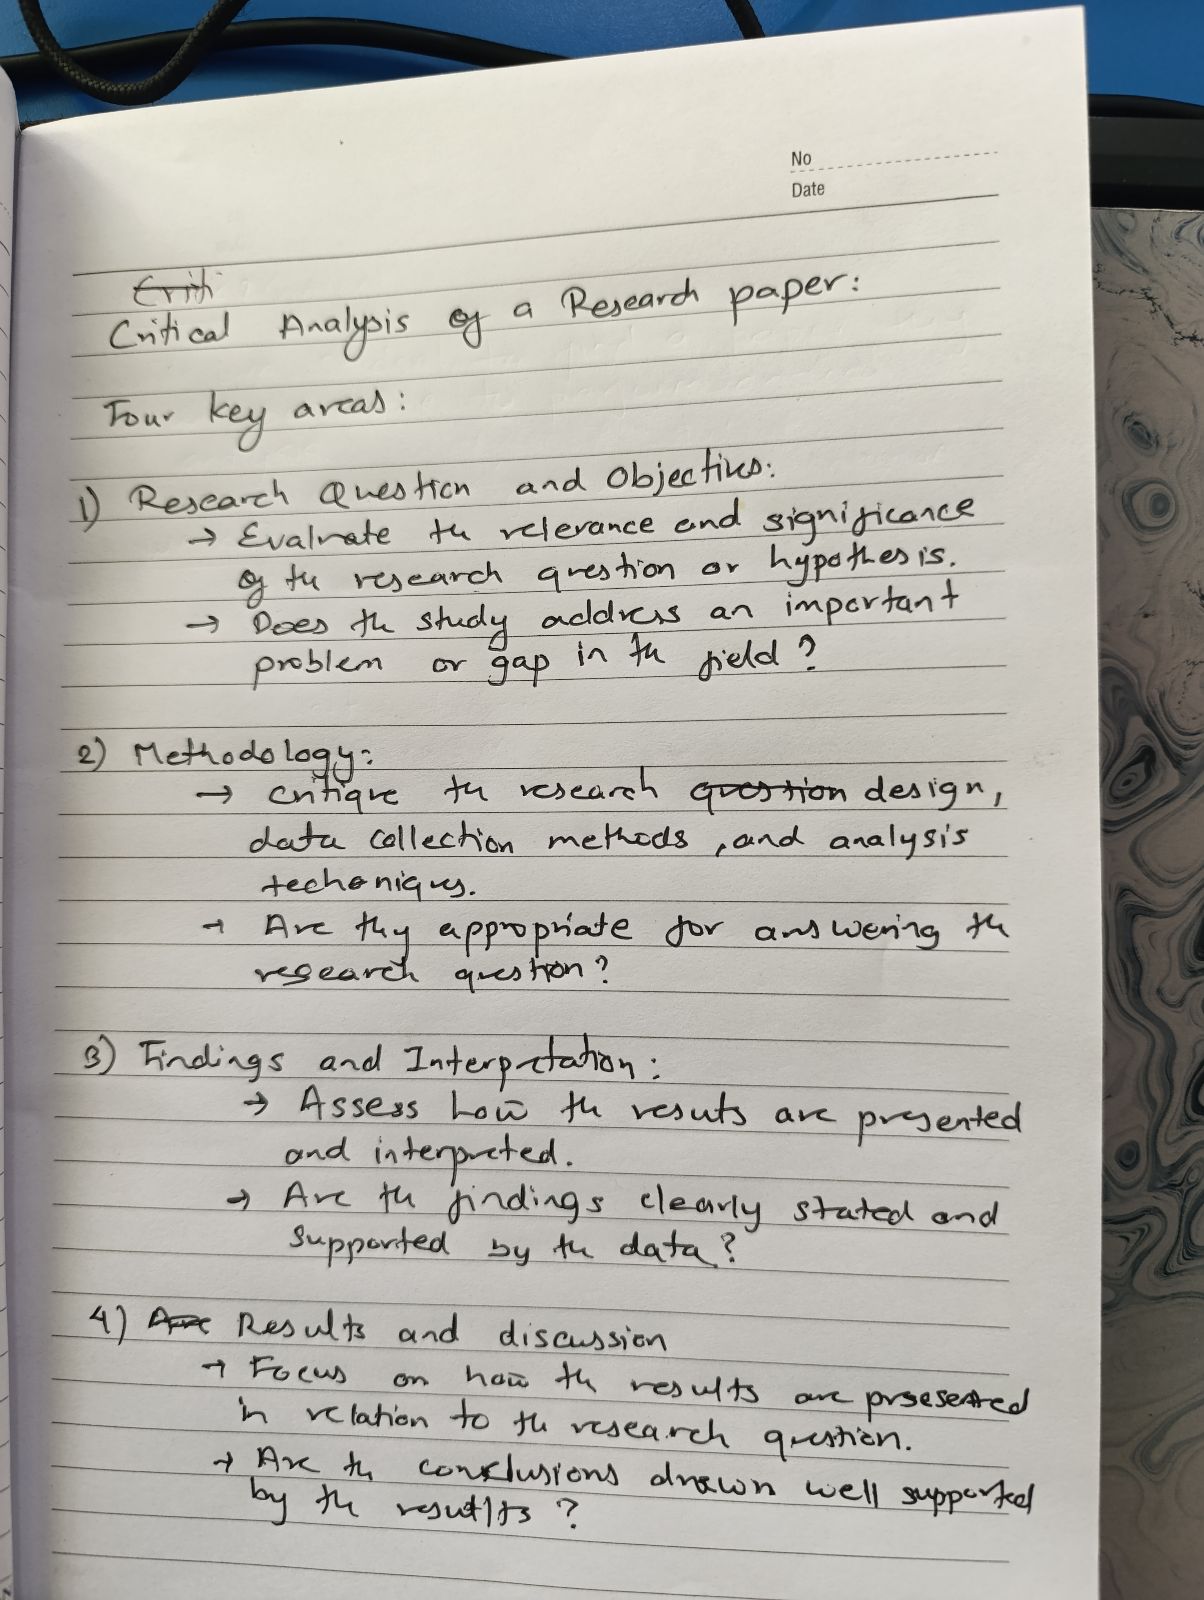 No
Date
Criti
Critical Analysis of a Research paper:
Four key areas:
1) Research Question and Objectives:
→ Evaluate the relevance and significance
of the research question or hypothesis.
→ Does the study address an important
problem or gap in the field?
2) Methodology:
→ critique the research question design,
data collection methods, and analysis
techoniques.
→ Are they appropriate for answering the
research question?
3) Findings and Interpretation:
→ Assess how the resuts are presented
and interpreted.
→ Are the findings clearly stated and
supported by the data?
4) Are Results and discussion
→ Focus on how the results are prsesented
in relation to the research question.
→ Are the conclusions drawn well supported
by the resutlts?